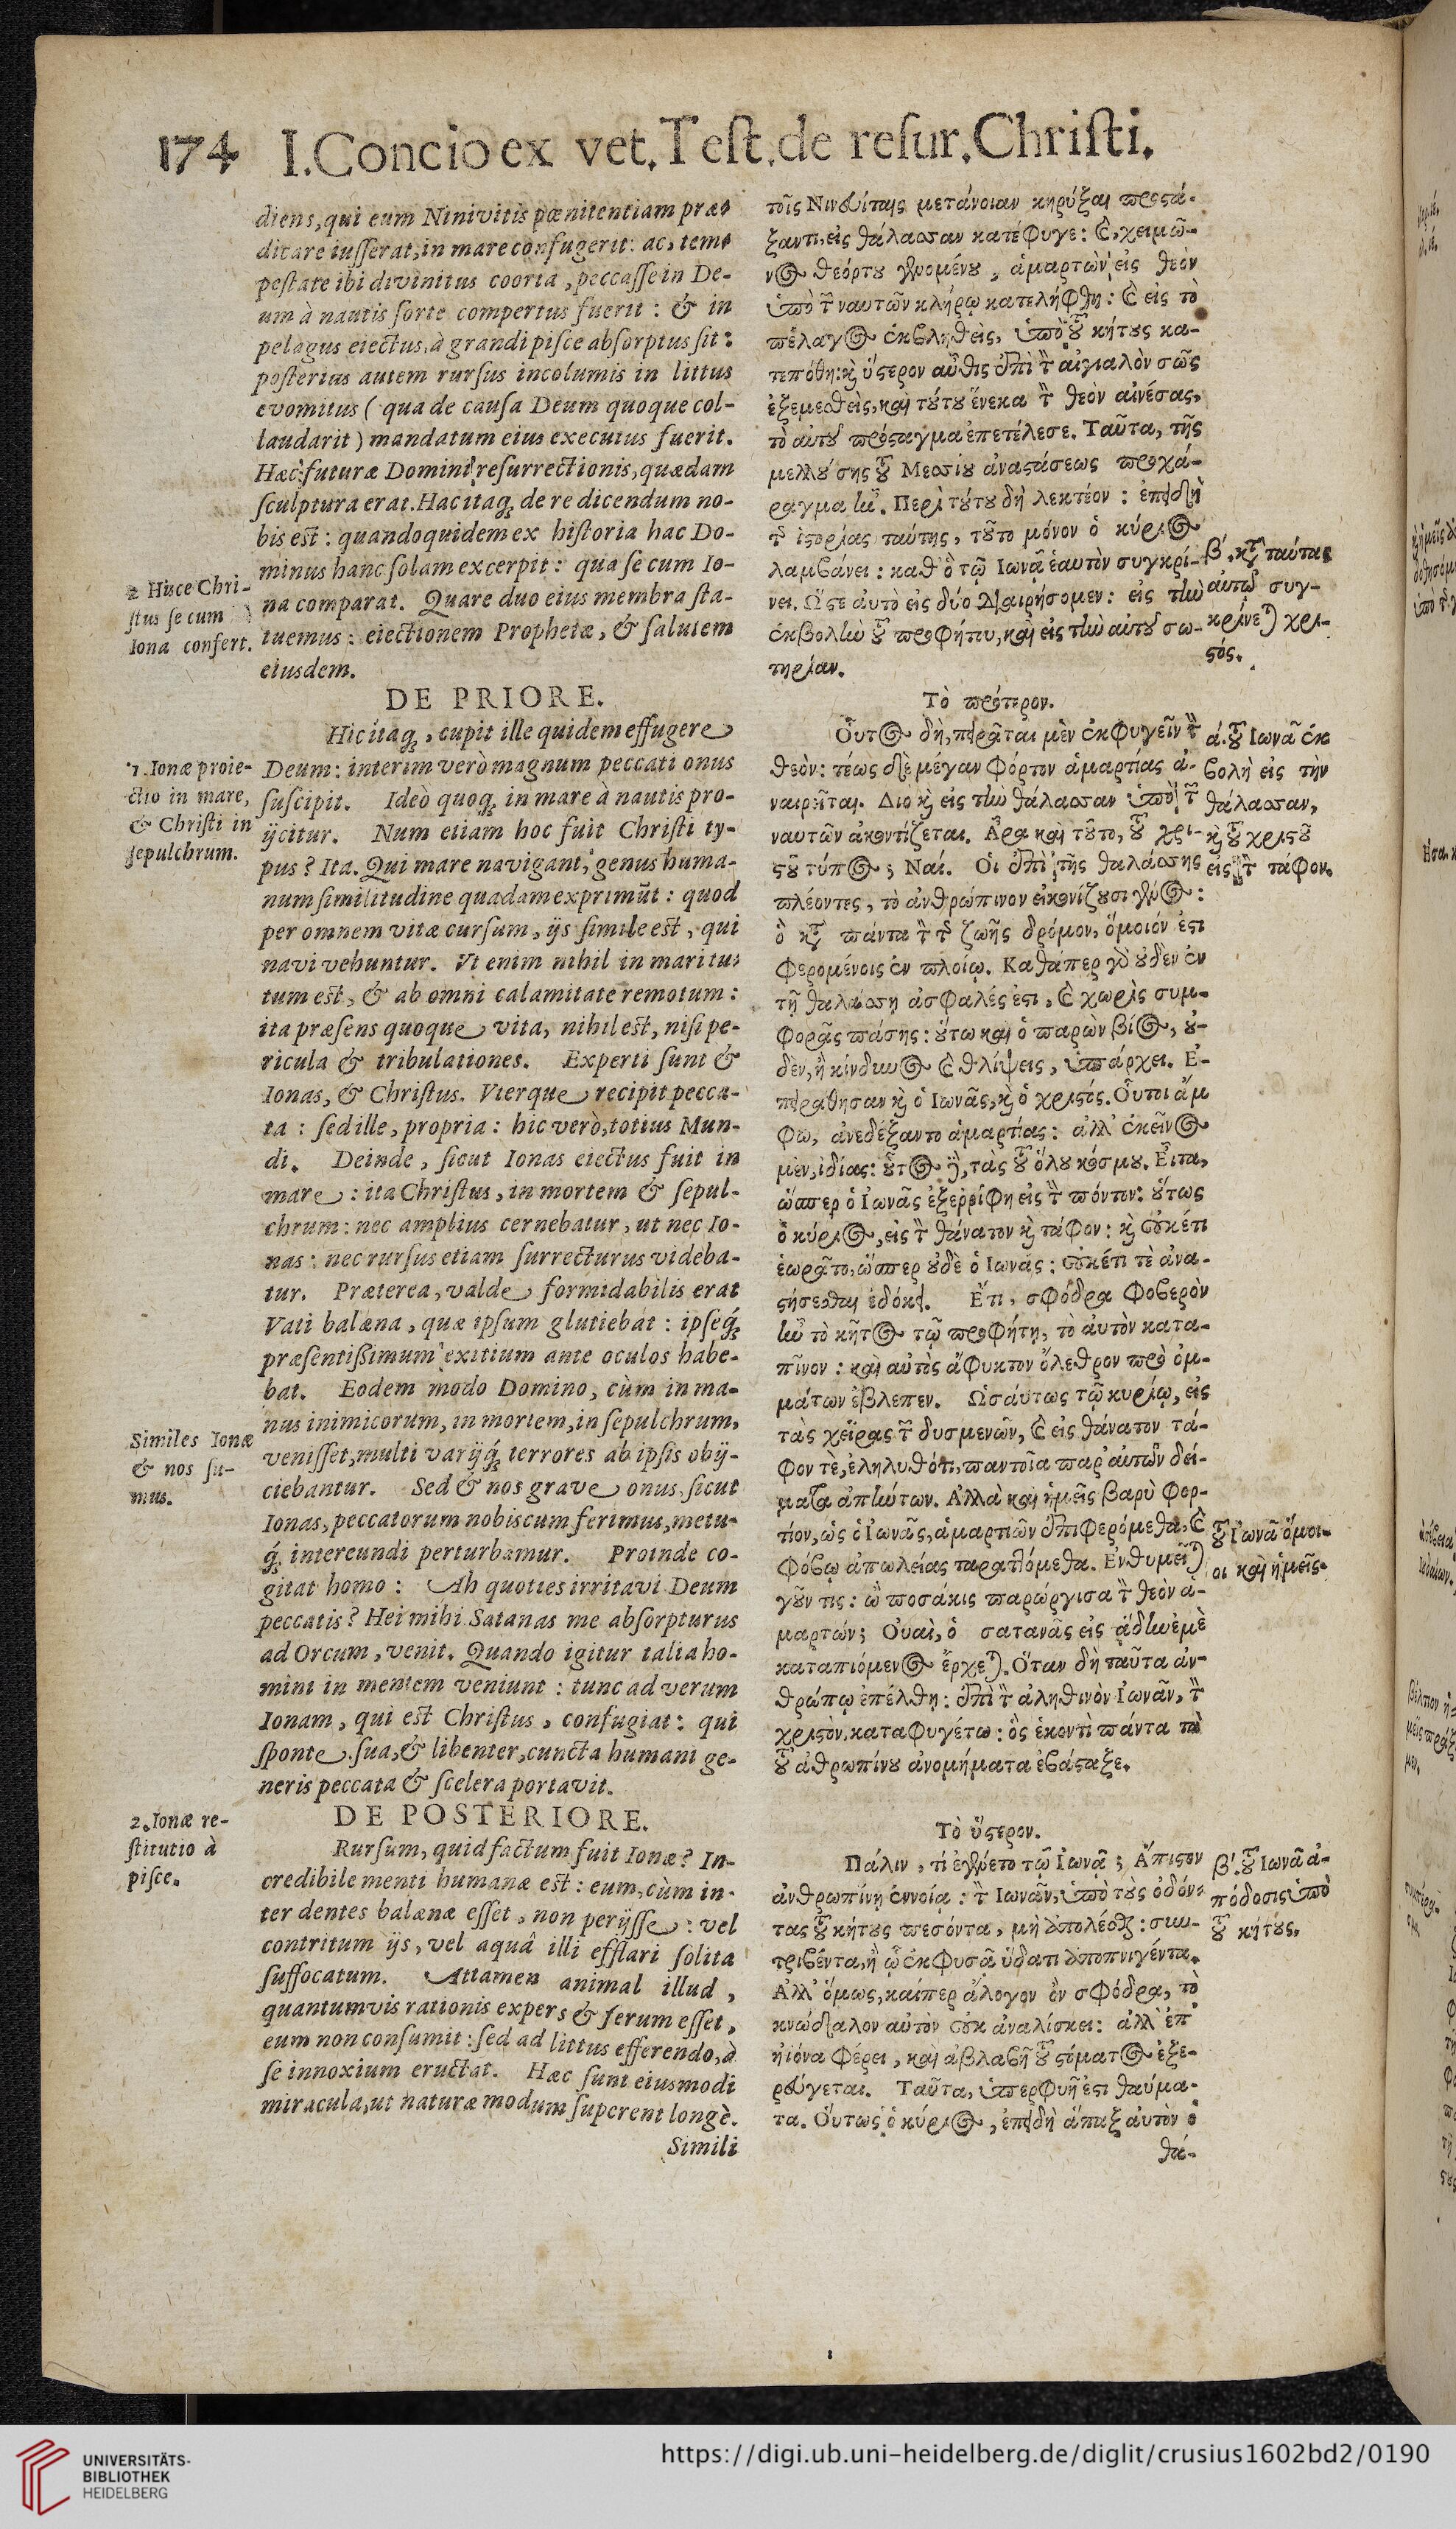 174 I. Concio ex vet. Test. de resur. Christi.
diens, qui eum Ninivitis pœnitentiam præ-
dicare iusserat, in mare confugerit: ac, tem-
pestate ibi divinitus coorta, peccasse in De-
um à nautis sorte compertus fuerit: & in
pelagus eiectus, à grandi pisce absorptus sit:
posterius autem rursus incolumis in littus
evomitus (qua de causa Deum quoque col-
laudarit) mandatum eius executus fuerit.
Hæc: futuræ Domini resurrectionis, quædam
sculptura erat. Hac itaq; de re dicendum no-
bis est: quandoquidem ex historia hac Do-
minus hanc solam excerpit: qua se cum Io-
na comparat. Quare duo eius membra sta-
tuemus: eiectionem Prophetæ, & salutem
eiusdem.
2 Huce Chri-
stus se cum
Iona confert.
DE PRIORE.
Hic itaq;, cupit ille quidem effugere
Deum: interim verò magnum peccati onus
suscipit. Ideò quoq; in mare à nautis pro-
ijcitur. Num etiam hoc fuit Christi ty-
pus? Ita. Qui mare navigant, genus huma-
num similitudine quadam exprimūt: quod
per omnem vitæ cursum, ijs simile est, qui
navi vehuntur. Vt enim nihil in mari tu-
tum est, & ab omni calamitate remotum:
ita præsens quoque vita, nihil est, nisi pe-
ricula & tribulationes. Experti sunt &
Ionas, & Christus. Vterque recipit pecca-
ta: sed ille, propria: hic verò, totius Mun-
di. Deinde, sicut Ionas eiectus fuit in
mare: ita Christus, in mortem & sepul-
chrum: nec amplius cernebatur, ut nec Io-
nas: nec rursus etiam surrecturus videba-
tur. Præterea, valde formidabilis erat
Vati balæna, quæ ipsum glutiebat: ipseq́;
præsentißimum exitium ante oculos habe-
bat. Eodem modo Domino, cùm in ma-
nus inimicorum, in mortem, in sepulchrum,
venisset, multi varijq́; terrores ab ipsis obij-
ciebantur. Sed & nos grave onus, sicut
Ionas, peccatorum nobiscum ferimus, metu-
q́; intereundi perturbamur. Proinde co-
gitat homo: Ah quoties irritavi Deum
peccatis? Hei mihi Satanas me absorpturus
ad Orcum, venit. Quando igitur talia ho-
mini in mentem veniunt: tunc ad verum
Ionam, qui est Christus, confugiat: qui
sponte sua, & libenter, cuncta humani ge-
neris peccata & scelera portavit.
1. Ionæ proie-
ctio in mare,
& Christi in
sepulchrum.
Similes Ionæ
& nos su-
mus.
DE POSTERIORE.
Rursum, quid factum fuit Ionæ? In-
credibile menti humanæ est: eum, cùm in-
ter dentes balænæ esset, non perijsse: vel
contritum ijs, vel aquâ illi efflari solita
suffocatum. Attamen animal illud,
quantumvis rationis expers & ferum esset,
eum non consumit: sed ad littus efferendo, à
se innoxium eructat. Hæc sunt eiusmodi
miracula, ut naturæ modum superent longè.
Simili
2. Ionæ re-
stitutio à
pisce.
τοῖς Νινευίταις μετάνοιαν κηρύξαι προστά-
ξαντι, εἰς θάλασσαν κατέφυγε: καὶ, χειμῶ-
νος θεόρτου γενομένου, ἁμαρτὼν εἰς θεὸν
ὑπὸ τῶν ναυτῶν κλήρῳ κατελήφθη: καὶ εἰς τὸ
πέλαγος ἐκβληθεὶς, ὑπὸ τοῦ κήτους κα-
τεπόθη: καὶ ὕστερον αὖθις ἐπὶ τὸν αἰγιαλὸν σῶς
ἐξεμεσθεὶς, καὶ τούτου ἕνεκα τὸν θεὸν αἰνέσας,
τὸ αὐτοῦ πρόσταγμα ἐπετέλεσε. Ταῦτα, τῆς
μελλούσης τοῦ Μεσσίου ἀναστάσεως προχά-
ραγμα ἦν. Περὶ τούτου δὴ λεκτέον: ἐπειδὴ
τῆς ἱστορίας ταύτης, τοῦτο μόνον ὁ κύριος
λαμβάνει: καθ' ὃ τῷ Ιωνᾷ ἑαυτὸν συγκρί-
νει. Ὥστε αὐτὸ εἰς δύο διαιρήσομεν: εἰς τὴν
ἐκβολὴν τοῦ προφήτου, καὶ εἰς τὴν αὐτοῦ σω-
τηρίαν.
β', κατὰ ταύτας
αὐτῷ συγ-
κρίνεται χρι-
στός.
Τὸ πρότερον.
Οὗτος δὴ, πειρᾶται μὲν ἐκφυγεῖν τὸν
θεὸν: τέως δὲ μέγαν φόρτον ἁμαρτίας ἀ-
ναιρεῖται. Διὸ καὶ εἰς τὴν θάλασσαν ὑπὸ τῶν
ναυτῶν ἀκοντίζεται. Ἆρα καὶ τοῦτο, τοῦ χρι-
στοῦ τύπος; Ναί. Οἱ ἐπὶ τῆς θαλάσσης
πλέοντες, τὸ ἀνθρώπινον εἰκονίζουσι γένος:
ὃ κατὰ πάντα τὸν τῆς ζωῆς δρόμον, ὅμοιόν ἐστι
φερομένοις ἐν πλοίῳ. Καθάπερ γὰρ οὐδὲν ἐν
τῇ θαλάσσῃ ἀσφαλές ἐστι, καὶ χωρὶς συμ-
φορᾶς πάσης: οὕτω καὶ ὁ παρὼν βίος, οὐ-
δὲν, ἢ κίνδυνος καὶ θλίψεις, ὑπάρχει. Ἐ-
πειράθησαν καὶ ὁ Ἰωνᾶς, καὶ ὁ χριστός. Οὗτοι ἄμ
φω, ἀνεδέξαντο ἁμαρτίας: ἀλλ' ἐκεῖνος
μὲν, ἰδίας: οὗτος δὲ, τὰς τοῦ ὅλου κόσμου. Εἶτα,
ὥσπερ ὁ Ἰωνᾶς ἐξερρίφη εἰς τὸν πόντον: οὕτως
ὁ κύριος, εἰς τὸν θάνατον καὶ τάφον: καὶ οὐκέτι
ἑωρᾶτο, ὥσπερ οὐδὲ ὁ Ἰωνᾶς: οὐκέτι τὲ ἀνα-
στήσεσθαι ἐδόκει. Ἔτι, σφόδρα φοβερὸν
ἦν τὸ κῆτος τῷ προφήτῃ, τὸ αὐτὸν κατα-
πῖνον: καὶ αὐτὸς ἄφυκτον ὄλεθρον πρὸ ὀμ-
μάτων ἔβλεπεν. Ὡσαύτως τῷ κυρίῳ, εἰς
τὰς χεῖρας τῶν δυσμενῶν, καὶ εἰς θάνατον τά-
φον τὲ, ἐληλυθότι, παντοῖα παρ' αὐτῶν δεί-
ματα ἀπήντων. Ἀλλὰ καὶ ἡμεῖς βαρὺ φορ-
τίον, ὡς ὁ Ἰωνᾶς, ἁμαρτιῶν ἐπιφερόμεθα, καὶ
φόβῳ ἀπωλείας ταραττόμεθα. Ἐνθυμεῖται
γοῦν τις: ὢ ποσάκις παρώργισα τὸν θεὸν ἁ-
μαρτών; Οὐαὶ, ὁ σατανᾶς εἰς ᾅδην ἐμὲ
καταπιόμενος ἔρχεται. Ὅταν δὴ ταῦτα ἀν-
θρώπῳ ἐπέλθῃ: ἐπὶ τὸν ἀληθινὸν Ἰωνᾶν, τὸν
χριστὸν, καταφυγέτω: ὃς ἑκοντὶ πάντα τὰ
τοῦ ἀθρωπίνου ἀνομήματα ἐβάσταξε.
ά. τοῦ Ιωνᾶ ἐκ
βολὴ εἰς τὴν
θάλασσαν,
καὶ τοῦ χριστοῦ
εἰς τὸν τάφον.
τοῦ Ἰωνᾶ ὅμοι-
οι καὶ ἡμεῖς.
Τὸ ὕστερον.
Πάλιν, τί ἐγένετο τῷ Ἰωνᾷ; Ἄπιστον
ἀνθρωπίνῃ ἐννοίᾳ: τὸν Ιωνᾶν, ὑπὸ τοὺς ὀδόν-
τας τοῦ κήτους πεσόντα, μὴ ἀπολέσθαι: συν-
τριβέντα, ἢ ᾧ ἐκφυσᾷ ὕδατι ἀποπνιγέντα.
Ἀλλ' ὅμως, καίπερ ἄλογον ὂν σφόδρα, τὸ
κνώδαλον αὐτὸν οὐκ ἀναλίσκει: ἀλλ' ἐπ'
ἠϊόνα φέρει, καὶ ἀβλαβῆ τοῦ στόματος ἐξε-
ρεύγεται. Ταῦτα, ὑπερφυῆ ἐστι θαύμα-
τα. Οὕτως ὁ κύριος, ἐπειδὴ ἅπαξ αὐτὸν ὁ
θά-
β'. τοῦ Ἰωνᾶ ἀ-
πόδοσις ὑπὸ
τοῦ κήτους.
UNIVERSITÄTS-
BIBLIOTHEK
HEIDELBERG
https://digi.ub.uni-heidelberg.de/diglit/crusius1602bd2/0190